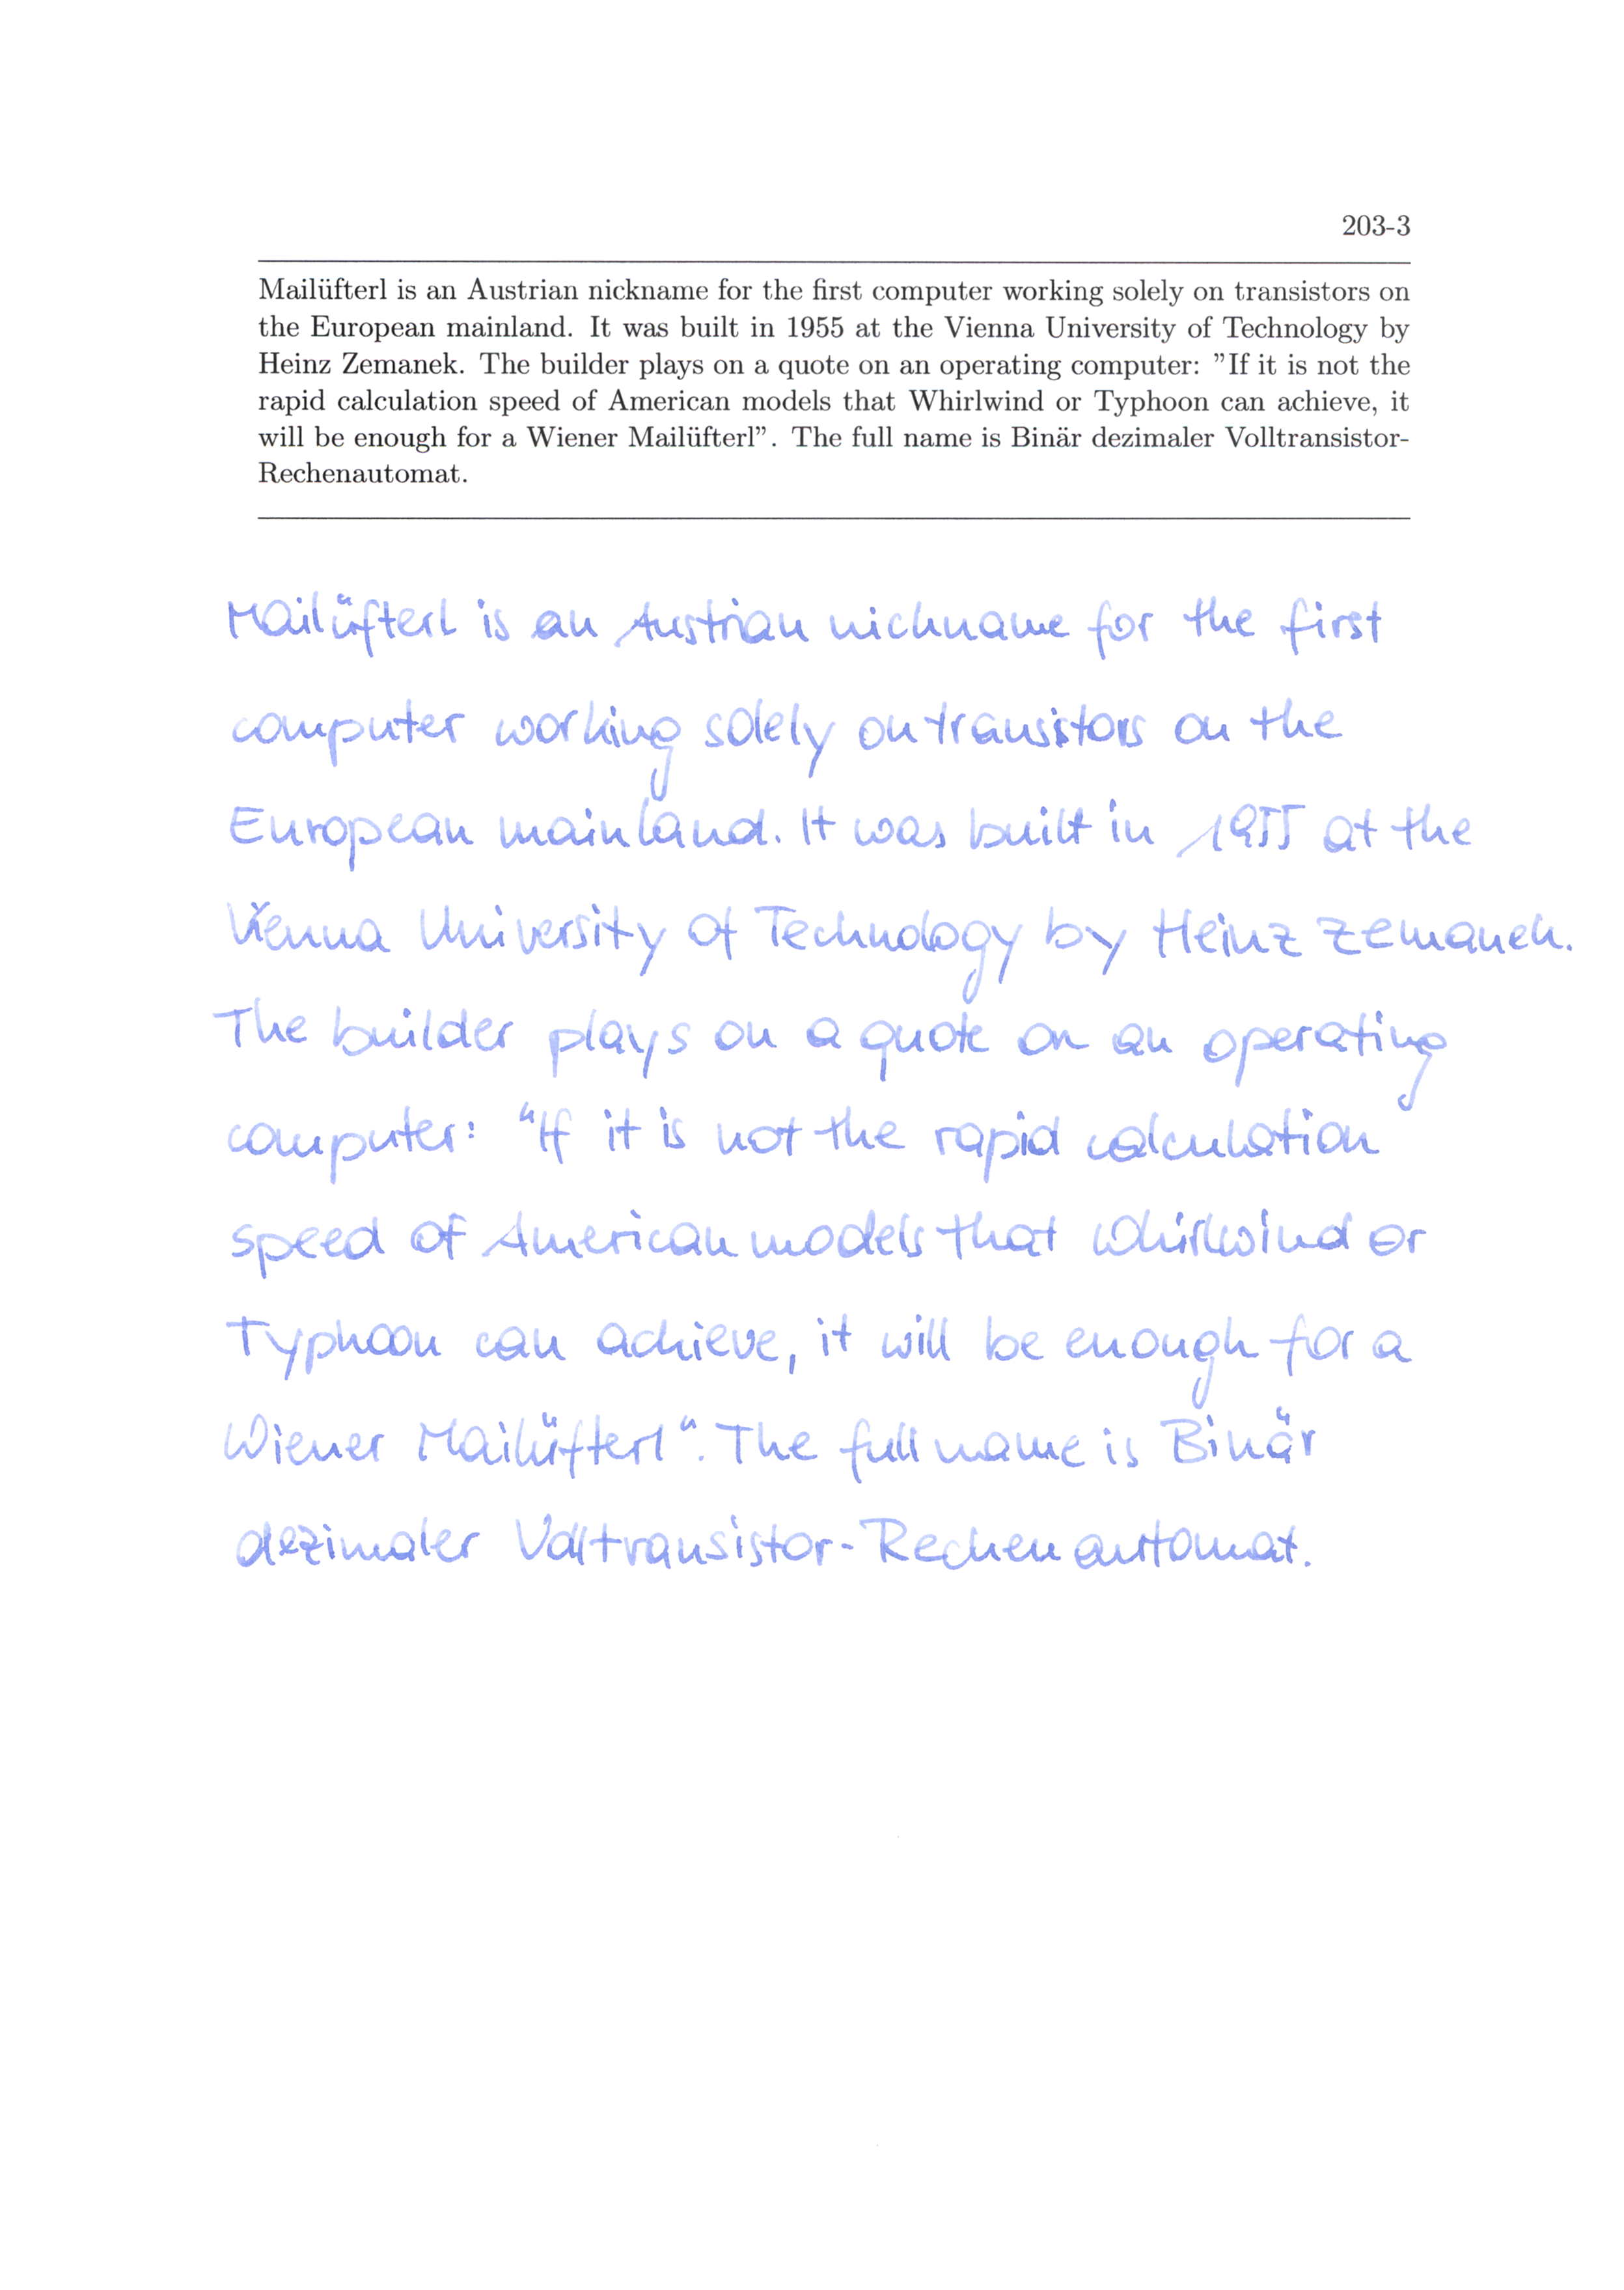 203-3
Mailüfterl is an Austrian nickname for the first computer working solely on transistors on
the European mainland. It was built in 1955 at the Vienna University of Technology by
Heinz Zemanek. The builder plays on a quote on an operating computer: ”If it is not the
rapid calculation speed of American models that Whirlwind or Typhoon can achieve, it
will be enough for a Wiener Mailüfterl”. The full name is Binär dezimaler Volltransistor-
Rechenautomat.
Mailüfterl is an Austrian nickname for the first
computer working solely on transistors on the
European mainland. It was built in 1955 at the
Vienna University of Technology by Heinz Zemanek.
The builder plays on a quote on an operating
computer: "If it is not the rapid calculation
speed of American models that Whirlwind or
Typhoon can achieve, it will be enough for a
Wiener Mailüfterl". The full name is Binär
dezimaler Volltransistor-Rechenautomat.